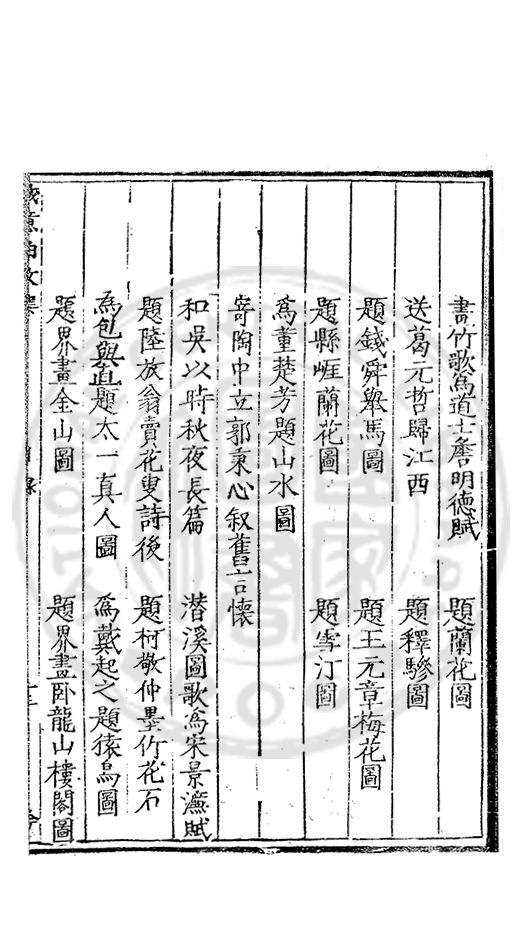 畫竹歌為道士詹明德賦　題蘭花圖
送葛元哲歸江西　題釋驂圖
題錢舜舉馬圖　題王元章梅花圖
題縣崕蘭花圖　題雪汀圖
為董楚芳題山水圖
寄陶中立郭秉心叙舊言懷
和吳以時秋夜長篇　潜溪圖歌為宋景濂賦
題陸放翁賣花叟詩後　題柯敬仲墨竹花石
為包與直題太一真人圖　為戴起之題猿鳥圖
題界畫金山圖　題界畫卧龍山樓閣圖